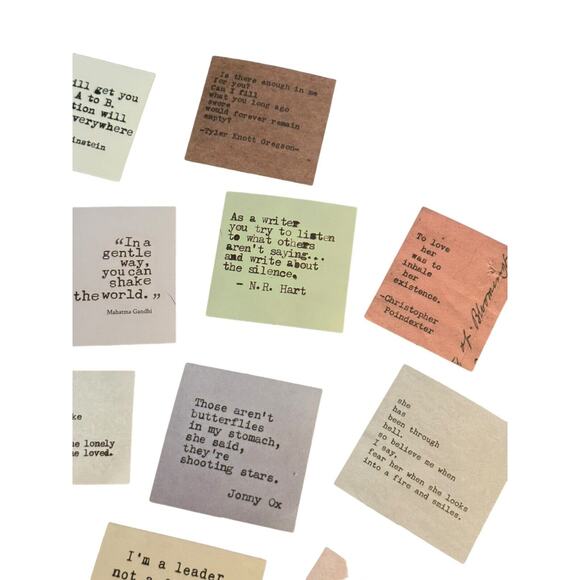 ill get you
A to B.
tion will
verywhere
instein
Is there enough in me
for you?
Can I fill
what you long ago
swore
would forever remain
empty?
-Tyler Knott Gregson-
“In a
gentle
way,
you can
shake
the world.”
Mahatma Gandhi
As a writer
you try to listen
to what others
aren't saying...
and write about
the silence.
- N.R. Hart
To love
her
was to
inhale
her
existence.
-Christopher
Poindexter
ke
e lonely
e loved.
Those aren't
butterflies
in my stomach,
she said,
they're
shooting stars.
Jonny Ox
she
has
been through
hell.
so believe me when
I say,
fear her when she looks
into a fire and smiles.
I'm a leader
not a